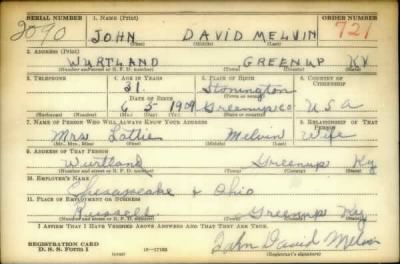 SERIAL NUMBER 1. NAME (Print) ORDER NUMBER
2090 JOHN DAVID MELVIN 721
(First) (Middle) (Last)
2. ADDRESS (Print)
WURTLAND GREENUP KY
(Number and street or R. F. D. number) (Town) (County) (State)
3. TELEPHONE 4. AGE IN YEARS 5. PLACE OF BIRTH 6. COUNTRY OF CITIZENSHIP
31. Stonington
DATE OF BIRTH (Town or county)
6 5 1909 Greenup Co U S A
(Mo.) (Day) (Yr.) (State or country)
7. NAME OF PERSON WHO WILL ALWAYS KNOW YOUR ADDRESS 8. RELATIONSHIP OF THAT PERSON
Mrs Lottie Melvin Wife
(Mr., Mrs., Miss) (First) (Middle) (Last)
9. ADDRESS OF THAT PERSON
Wurtland Greenup Ky
(Number and street or R. F. D. number) (Town) (County) (State)
10. EMPLOYER'S NAME
Chesapeake & Ohio
11. PLACE OF EMPLOYMENT OR BUSINESS
Russell Greenup Ky
(Number and street or R. F. D. number) (Town) (County) (State)
I AFFIRM THAT I HAVE VERIFIED ABOVE ANSWERS AND THAT THEY ARE TRUE.
REGISTRATION CARD
D. S. S. Form 1 (over) John David Melvin
(Registrant's signature)